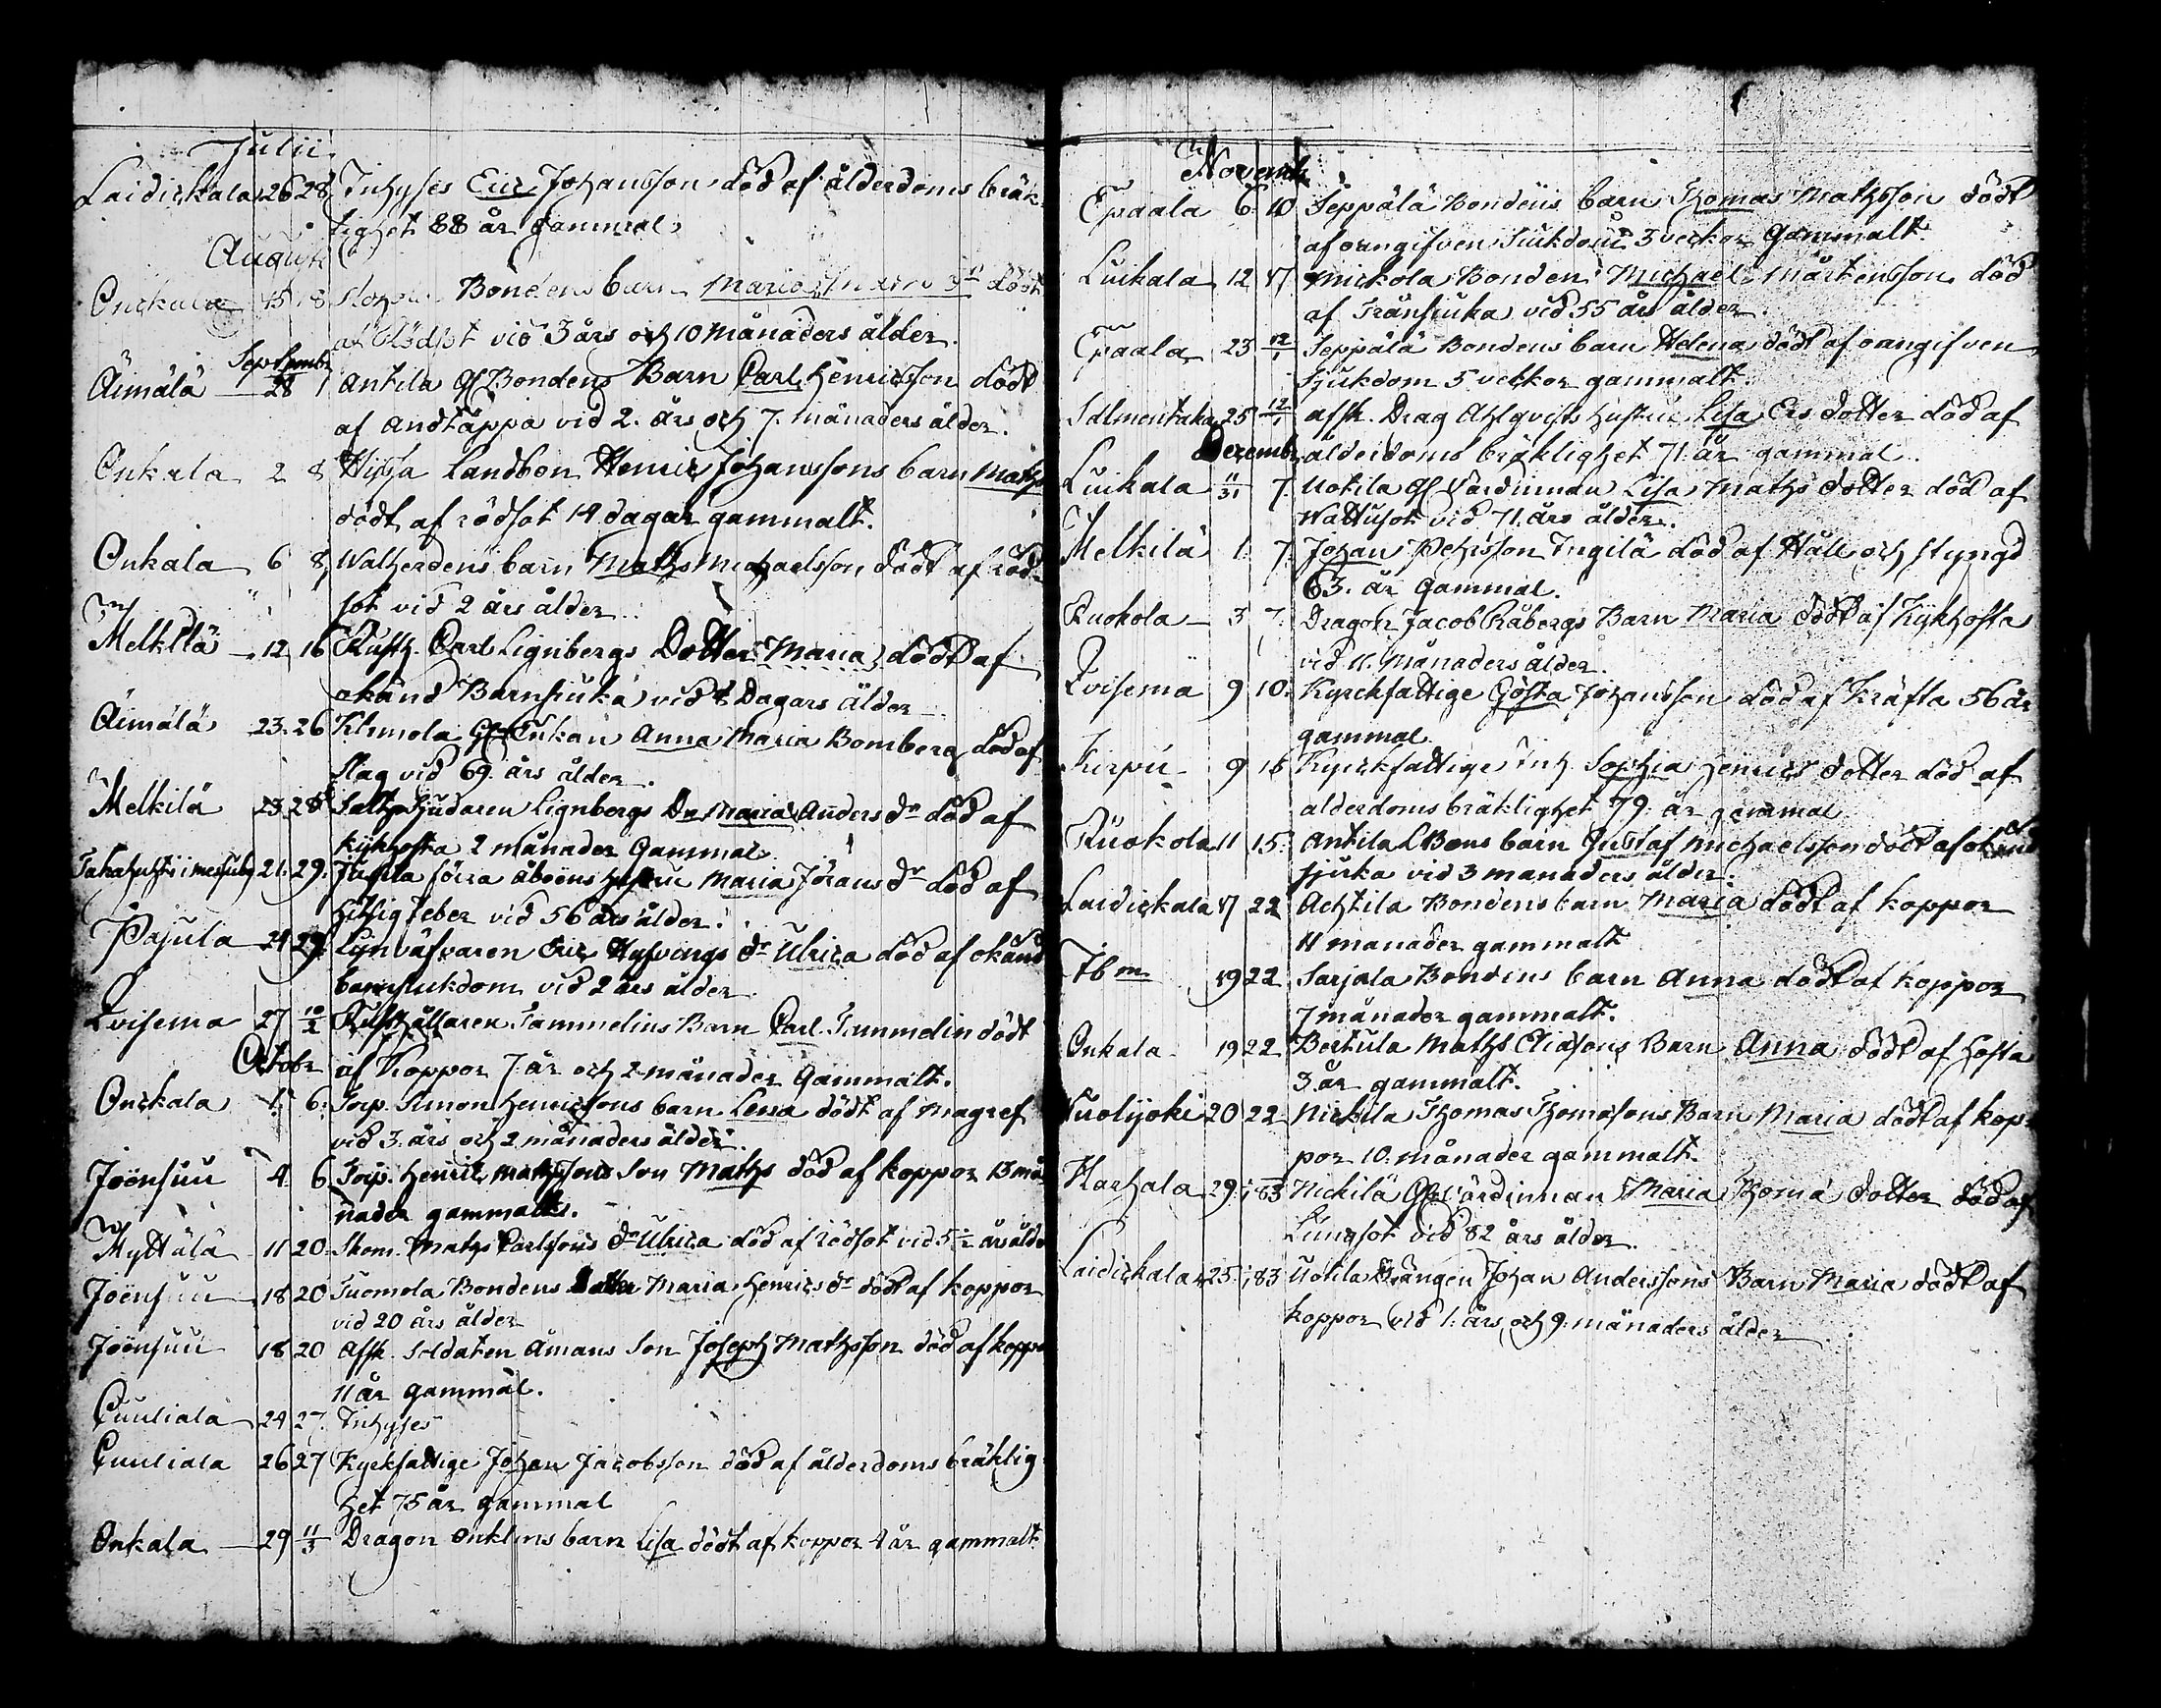 Julii
Laidickala 26 28 Inhyses Eric Johansson död af ålderdoms bräk
lighet 88 år gammal
August
Onckala 15 18 Bondens barn Maria död
af Rödsot vid 3 års och 10 månaders ålder.
Septembr
Äimälä 28 1 Antila Gl Bondens Barn Carl Henricsson dödt
af andtäppa vid 2. års och 7. månaders ålder.
Onkala 2 8 Hissa Landbon Henric Johanssons barn Maths
dödt af rödsot 14 dagar gammalt.
Onkala 6 8 barn Maths Michaelsson dödt af röd
sot vid 2 års ålder
Melkilä 12 16 Rusth. Carl Lignbergs Dotter Maria, död af
okänd Barnsiuka vid 8 Dagars ålder
Äimälä 23. 26 Klemola Gl Enkan Anna Maria Bomberg död af
slag vid 69. års ålder.
Melkilä 23 28 Lignbergs Dr Maria Anders dr död af
kykhosta 2 månader Gammal
21. 29. förra åboens hustru Maria Jörans dr död af
hitsig feber vid 56 års ålder.
Pajula 24 29. Linväfvaren Eric dr Ulrica död af okänd
barnsiukdom vid 2 års ålder
Kvisema 27 10/2 Rusthållaren Tammelins Barn Carl Tammelin dödt
Octobr
af Koppor 7. år och 2 månader Gammalt.
Onckala 1. 6. Torp. Simon Henricsons barn Lena dödt af magref
vid 3. års och 2 månaders ålder
Joensuu 4. 6 Torp. Henric Mathssons Son Maths död af koppor 13 må
nader gammalt.
Myttälä 11 20 Skom. Maths Carlssons dr Ulrica död af rödsot vid 5 1/2 års ålde
Joensuu 18 20 Tuomola Bondens Dotter Maria Henrics dr död af koppor
vid 20 års ålder
Joensuu 18 20 Afsk. Soldaten Åmans Son Joseph Mathsson död af koppor
11 år gammal.
Cuuliala 24 27 Inhyses
Cuuliala 26 27 Kyrkfattige Johan Jacobsson död af ålderdoms bräklig
het 75 år gammal
Onkala 29 11/3 Dragon Onklins barn Lisa dödt af koppor 4 år gammalt
Novemb
Epaala 6. 10 Seppälä Bondens barn Thomas Mathsson dödt
af oangifven Siukdom 3 veckor Gammalt
Luikala 12 17 Mickola Bonden Michael Mårtensson död
af Trånsiuka vid 55 års ålder
Epaala 23 12/1 Seppälä Bondens barn Helena dödt af oangifven
Sjukdom 5 veckor gammalt
Salmentaka 25 12/1 afsk. Drag Ahlqvists hustru Lisa Ers dotter död af
Decembr
ålderdoms bräklighet 71 år gammal
Luikala 11/31 7. Uotila Gl Värdinnan Lisa Maths dotter död af
Wattusot vid 71. års ålder.
Melkilä 1. 7. Johan Pehrsson Ingilä död af Håll och styngd
63. år Gammal.
Ruokola 3 7. Dragon Jacob Råbergs Barn Maria dödt af Kykhosta
vid 11. månaders ålder
Kvisema 9 10. Kyrckfattige Gösta Johansson död af Kräfta 56 år
gammal.
Kirpu 9 15 Kyrckfattige Inh. Sophia Henrics dotter död af
ålderdoms bräklighet 79. år gammal
Ruokola 11 15. Antila LBons barn Gustaf Michaelsson dödt af okänd
sjuka vid 3 månaders ålder.
Laidickala 17 22 Achtila Bondens barn Maria dödt af koppor
11 månader gammalt
Ibm 19 22 Sarjala Bondens barn Anna dödt af koppor
7 månader gammalt.
Onkala 19 22 Bertula Maths Eliasons Barn Anna dödt af hosta
3. år gammalt.
Kuolijoki 20 22 Nickila Thomas Thomasons Barn Maria dödt af kop
por 10. månader gammalt.
Karhala 29 1/1 83 Nickilä Gl Värdinnan Maria Thoma dotter död af
Lungsot vid 82 års ålder.
Laidickala 25 1/1 83 Uotila Drängen Johan Anderssons Barn Maria dödt af
koppor vid 1. års och 9. månaders ålder